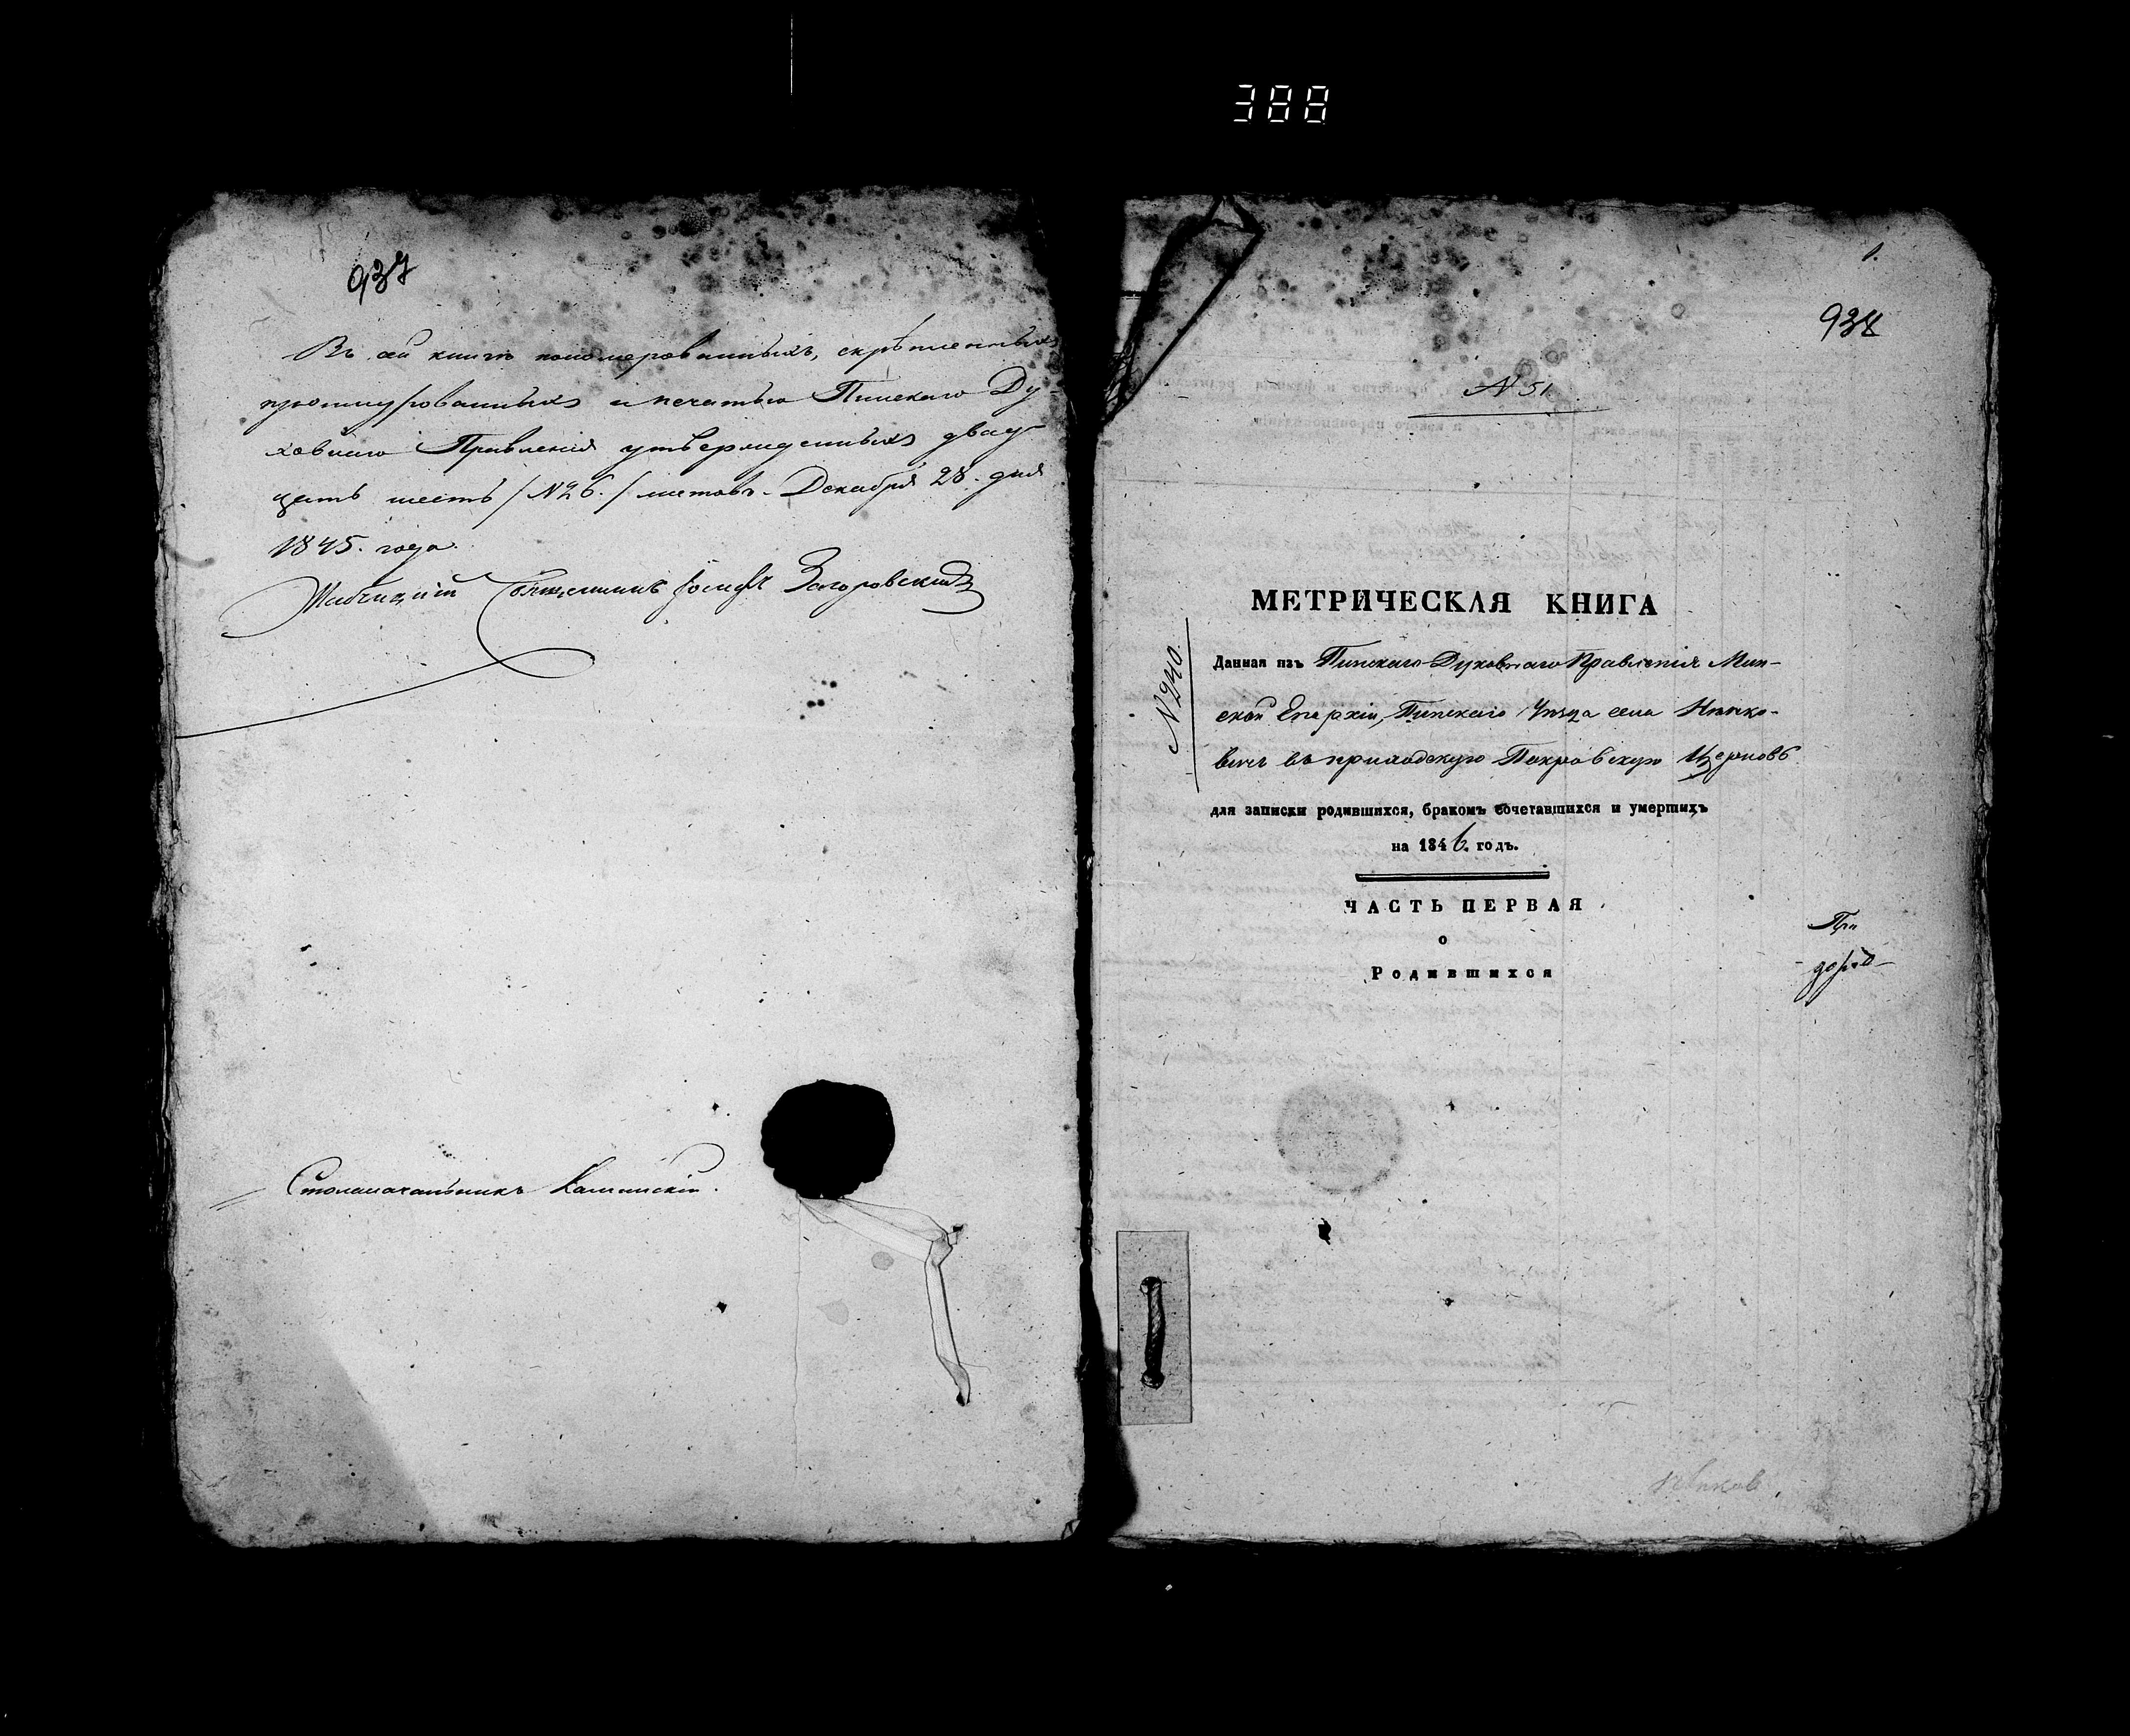 388
937
Въ сей книгѣ нономерованныхъ, скрѣпленныхъ
прошнурованныхъ и печатью Пинскаго Ду-
ховнаго Правленія утвержденныхъ двад-
цать шесть / №26. / листовъ. Декабря 28. дня
1845. года.
Священникъ Іосифъ Загоровскій
Столоначальникъ Калинскій.
1.
938
№ 51
МЕТРИЧЕСКАЯ КНИГА
№ 240.
Данная изъ Пинскаго Духовнаго Правленія Мин-
ской Епархіи, Пинскаго Уѣзда села Нянко-
вичъ въ приходскую Покровскую Церковь
для записки родившихся, бракомъ сочетавшихся и умершихъ
на 1846. годъ.
ЧАСТЬ ПЕРВАЯ
о
Родившихся
При